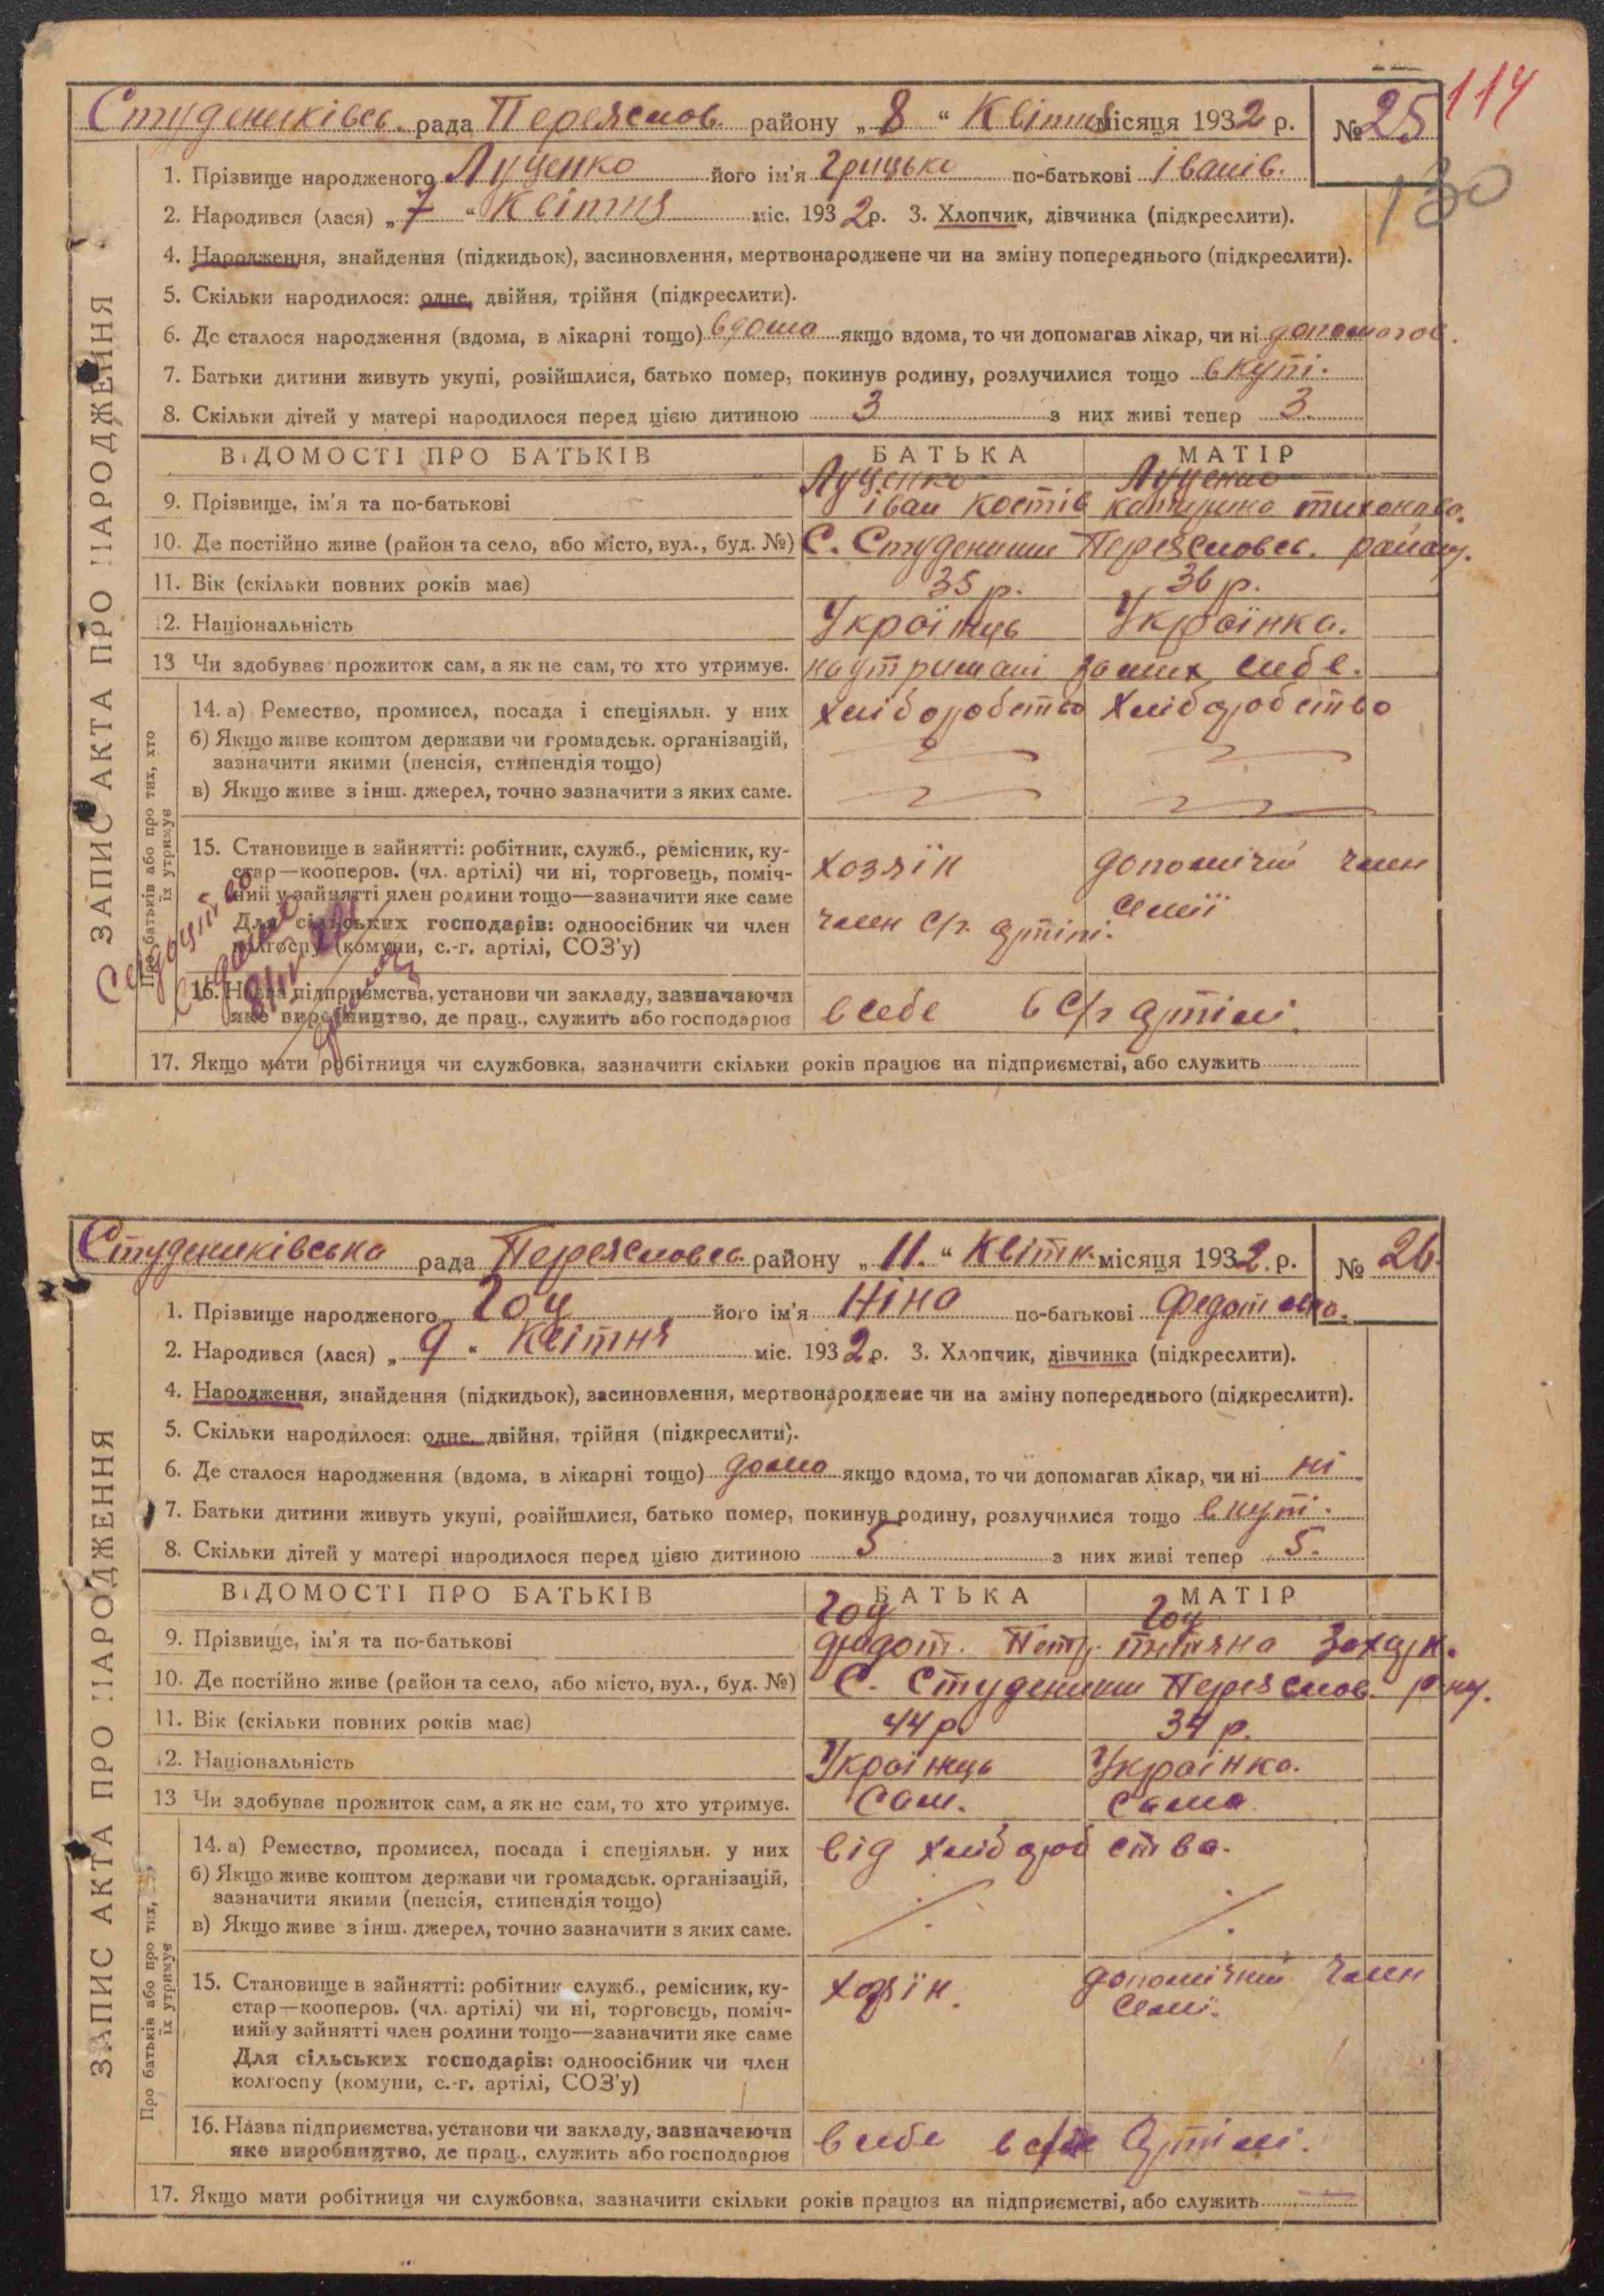 114
Студениківсь. рада Переяслов. району „8“ Квітня місяця 1932 р. № 25
130
1. Прізвище народженого Луценко його ім'я Грицько по-батькові Іванів.
2. Народився (лася) „7“ Квітня міс. 1932 р. 3. Хлопчик, дівчинка (підкреслити).
4. Народження, знайдення (підкидьок), засиновлення, мертвонароджене чи на зміну попереднього (підкреслити).
5. Скільки народилося: одне, двійня, трійня (підкреслити).
6. Де сталося народження (вдома, в лікарні тощо) вдома якщо вдома, то чи допомагав лікар, чи ні допомогав.
7. Батьки дитини живуть укупі, розійшлися, батько помер, покинув родину, розлучилися тощо вкупі.
8. Скільки дітей у матері народилося перед цією дитиною 3 з них живі тепер 3.
ВІДОМОСТІ ПРО БАТЬКІВ БАТЬКА МАТІР
Луценко Луценко
9. Прізвище, ім'я та по-батькові іван Костів катирина тихонова.
10. Де постійно живе (район та село, або місто, вул., буд. №) С. Студеники Переясловсь. району.
11. Вік (скільки повних років має) 35 р. 36 р.
12. Національність Українць Українка.
13 Чи здобуває прожиток сам, а як не сам, то хто утримує. на утримані самих себе.
14. а) Ремество, промисел, посада і спеціяльн. у них хліборобство Хліборобство
б) Якщо живе коштом держави чи громадськ. організацій,
зазначити якими (пенсія, стипендія тощо)
в) Якщо живе з інш. джерел, точно зазначити з яких саме.
Про батьків або про тих, хто
їх утримує
15. Становище в зайнятті: робітник, служб., ремісник, ку-
стар—кооперов. (чл. артілі) чи ні, торговець, поміч- хозяїн допомічний член
ний у зайнятті член родини тощо—зазначити яке саме семії
Для сільських господарів: одноосібник чи член член с/г. артілі.
колгоспу (комуни, с.-г. артілі, СОЗ'у)
16. Назва підприємства, установи чи закладу, зазначаючи
яке виробництво, де прац., служить або господарює в себе в С/г артілі.
17. Якщо мати робітниця чи службовка, зазначити скільки років працює на підприємстві, або служить
ЗАПИС АКТА ПРО НАРОДЖЕННЯ
Студениківська рада Переясловсь району „11.“ Квітн. місяця 1932. р. № 26.
1. Прізвище народженого Гоц його ім'я Ніна по-батькові Федотовна.
2. Народився (лася) „9“ Квітня міс. 1932 р. 3. Хлопчик, дівчинка (підкреслити).
4. Народження, знайдення (підкидьок), засиновлення, мертвонароджене чи на зміну попереднього (підкреслити).
5. Скільки народилося: одне, двійня, трійня (підкреслити).
6. Де сталося народження (вдома, в лікарні тощо) дома якщо вдома, то чи допомагав лікар, чи ні ні
7. Батьки дитини живуть укупі, розійшлися, батько помер, покинув родину, розлучилися тощо вкупі.
8. Скільки дітей у матері народилося перед цією дитиною 5 з них живі тепер 5.
ВІДОМОСТІ ПРО БАТЬКІВ БАТЬКА МАТІР
Гоц Гоц
9. Прізвище, ім'я та по-батькові Федот. Петр. титяна Захарк.
10. Де постійно живе (район та село, або місто, вул., буд. №) С. Студеники Переяслов. р-ну.
11. Вік (скільки повних років має) 44 р. 34 р.
12. Національність Українець Українка.
13 Чи здобуває прожиток сам, а як не сам, то хто утримує. Сам. сама
14. а) Ремество, промисел, посада і спеціяльн. у них від хліборобства.
б) Якщо живе коштом держави чи громадськ. організацій,
зазначити якими (пенсія, стипендія тощо)
в) Якщо живе з інш. джерел, точно зазначити з яких саме.
Про батьків або про тих,
їх утримує
15. Становище в зайнятті: робітник служб., ремісник, ку- хозяїн. допомічний член
стар—кооперов. (чл. артілі) чи ні, торговець, поміч- семї.
ний у зайнятті член родини тощо—зазначити яке саме
Для сільських господарів: одноосібник чи член
колгоспу (комуни, с.-г. артілі, СОЗ'у)
16. Назва підприємства, установи чи закладу, зазначаючи
яке виробництво, де прац., служить або господарює в себе в с/г Артілі.
17. Якщо мати робітниця чи службовка, зазначити скільки років працює на підприємстві, або служить
ЗАПИС АКТА ПРО НАРОДЖЕННЯ